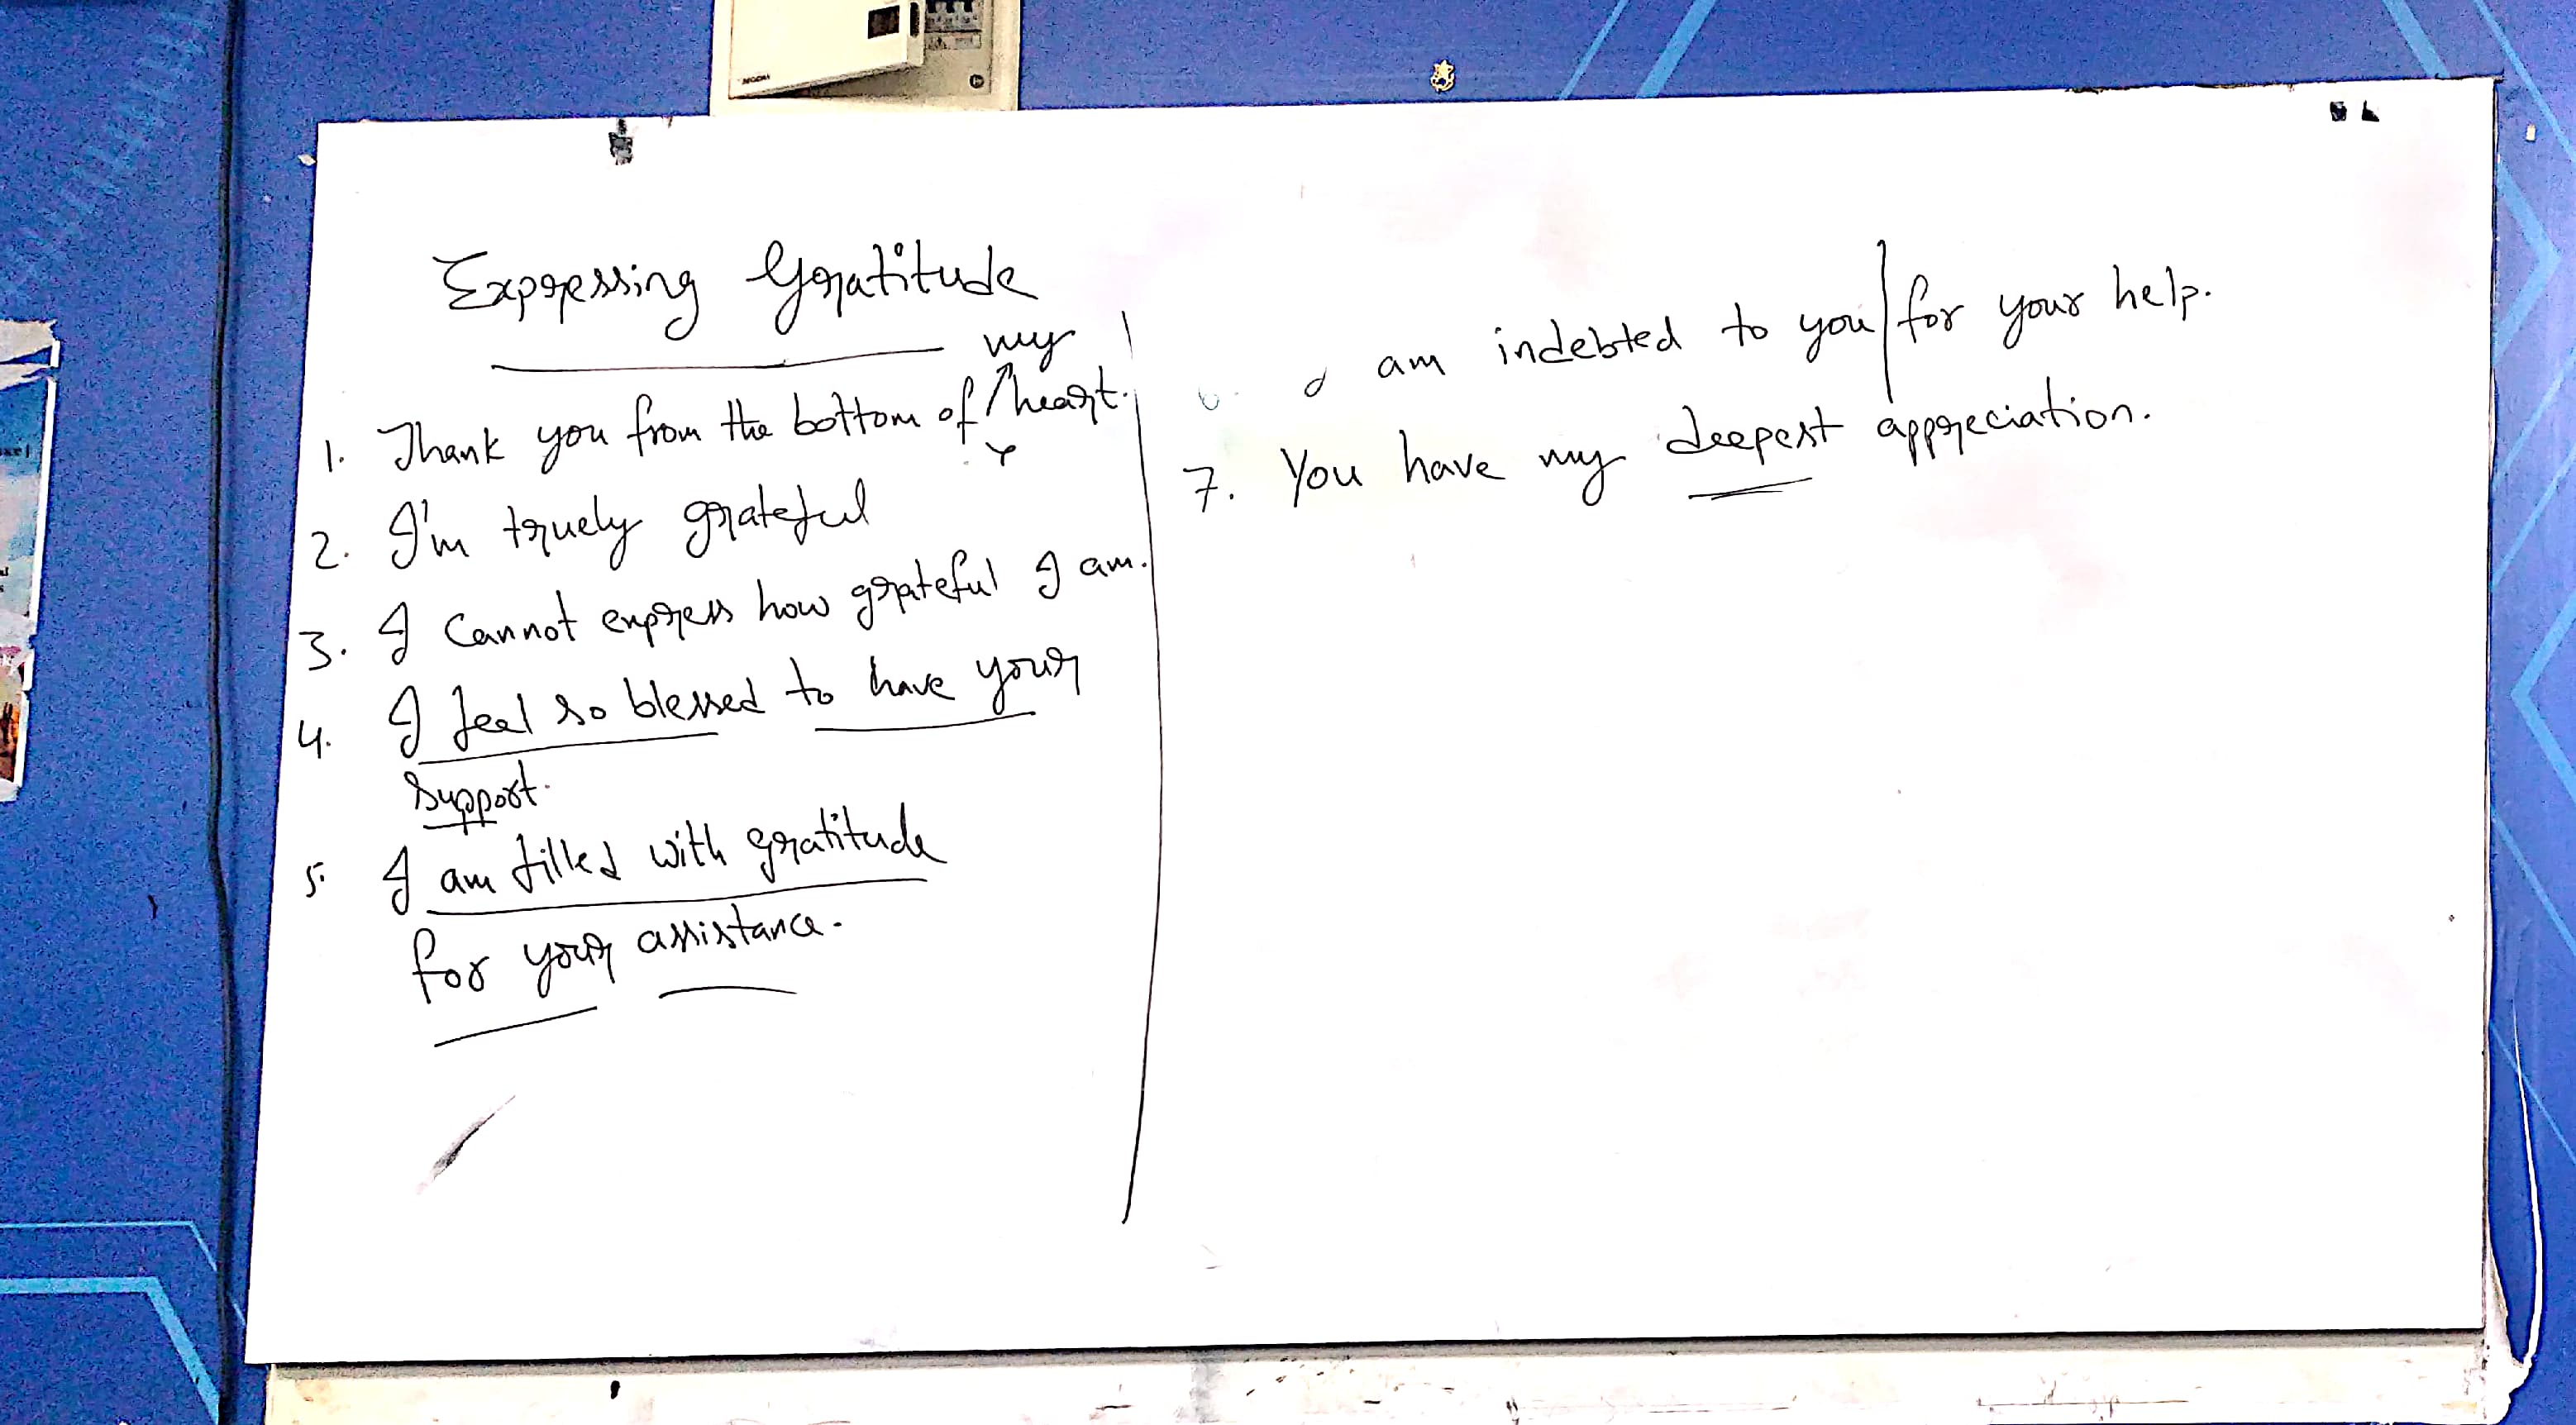 Expressing Gratitude
my
1. Thank you from the bottom of heart.
2. I'm truely grateful
3. I cannot express how grateful I am.
4. I feel so blessed to have your
support.
5. I am filled with gratitude
for your assistance.
6. I am indebted to you for your help.
7. You have my deepest appreciation.